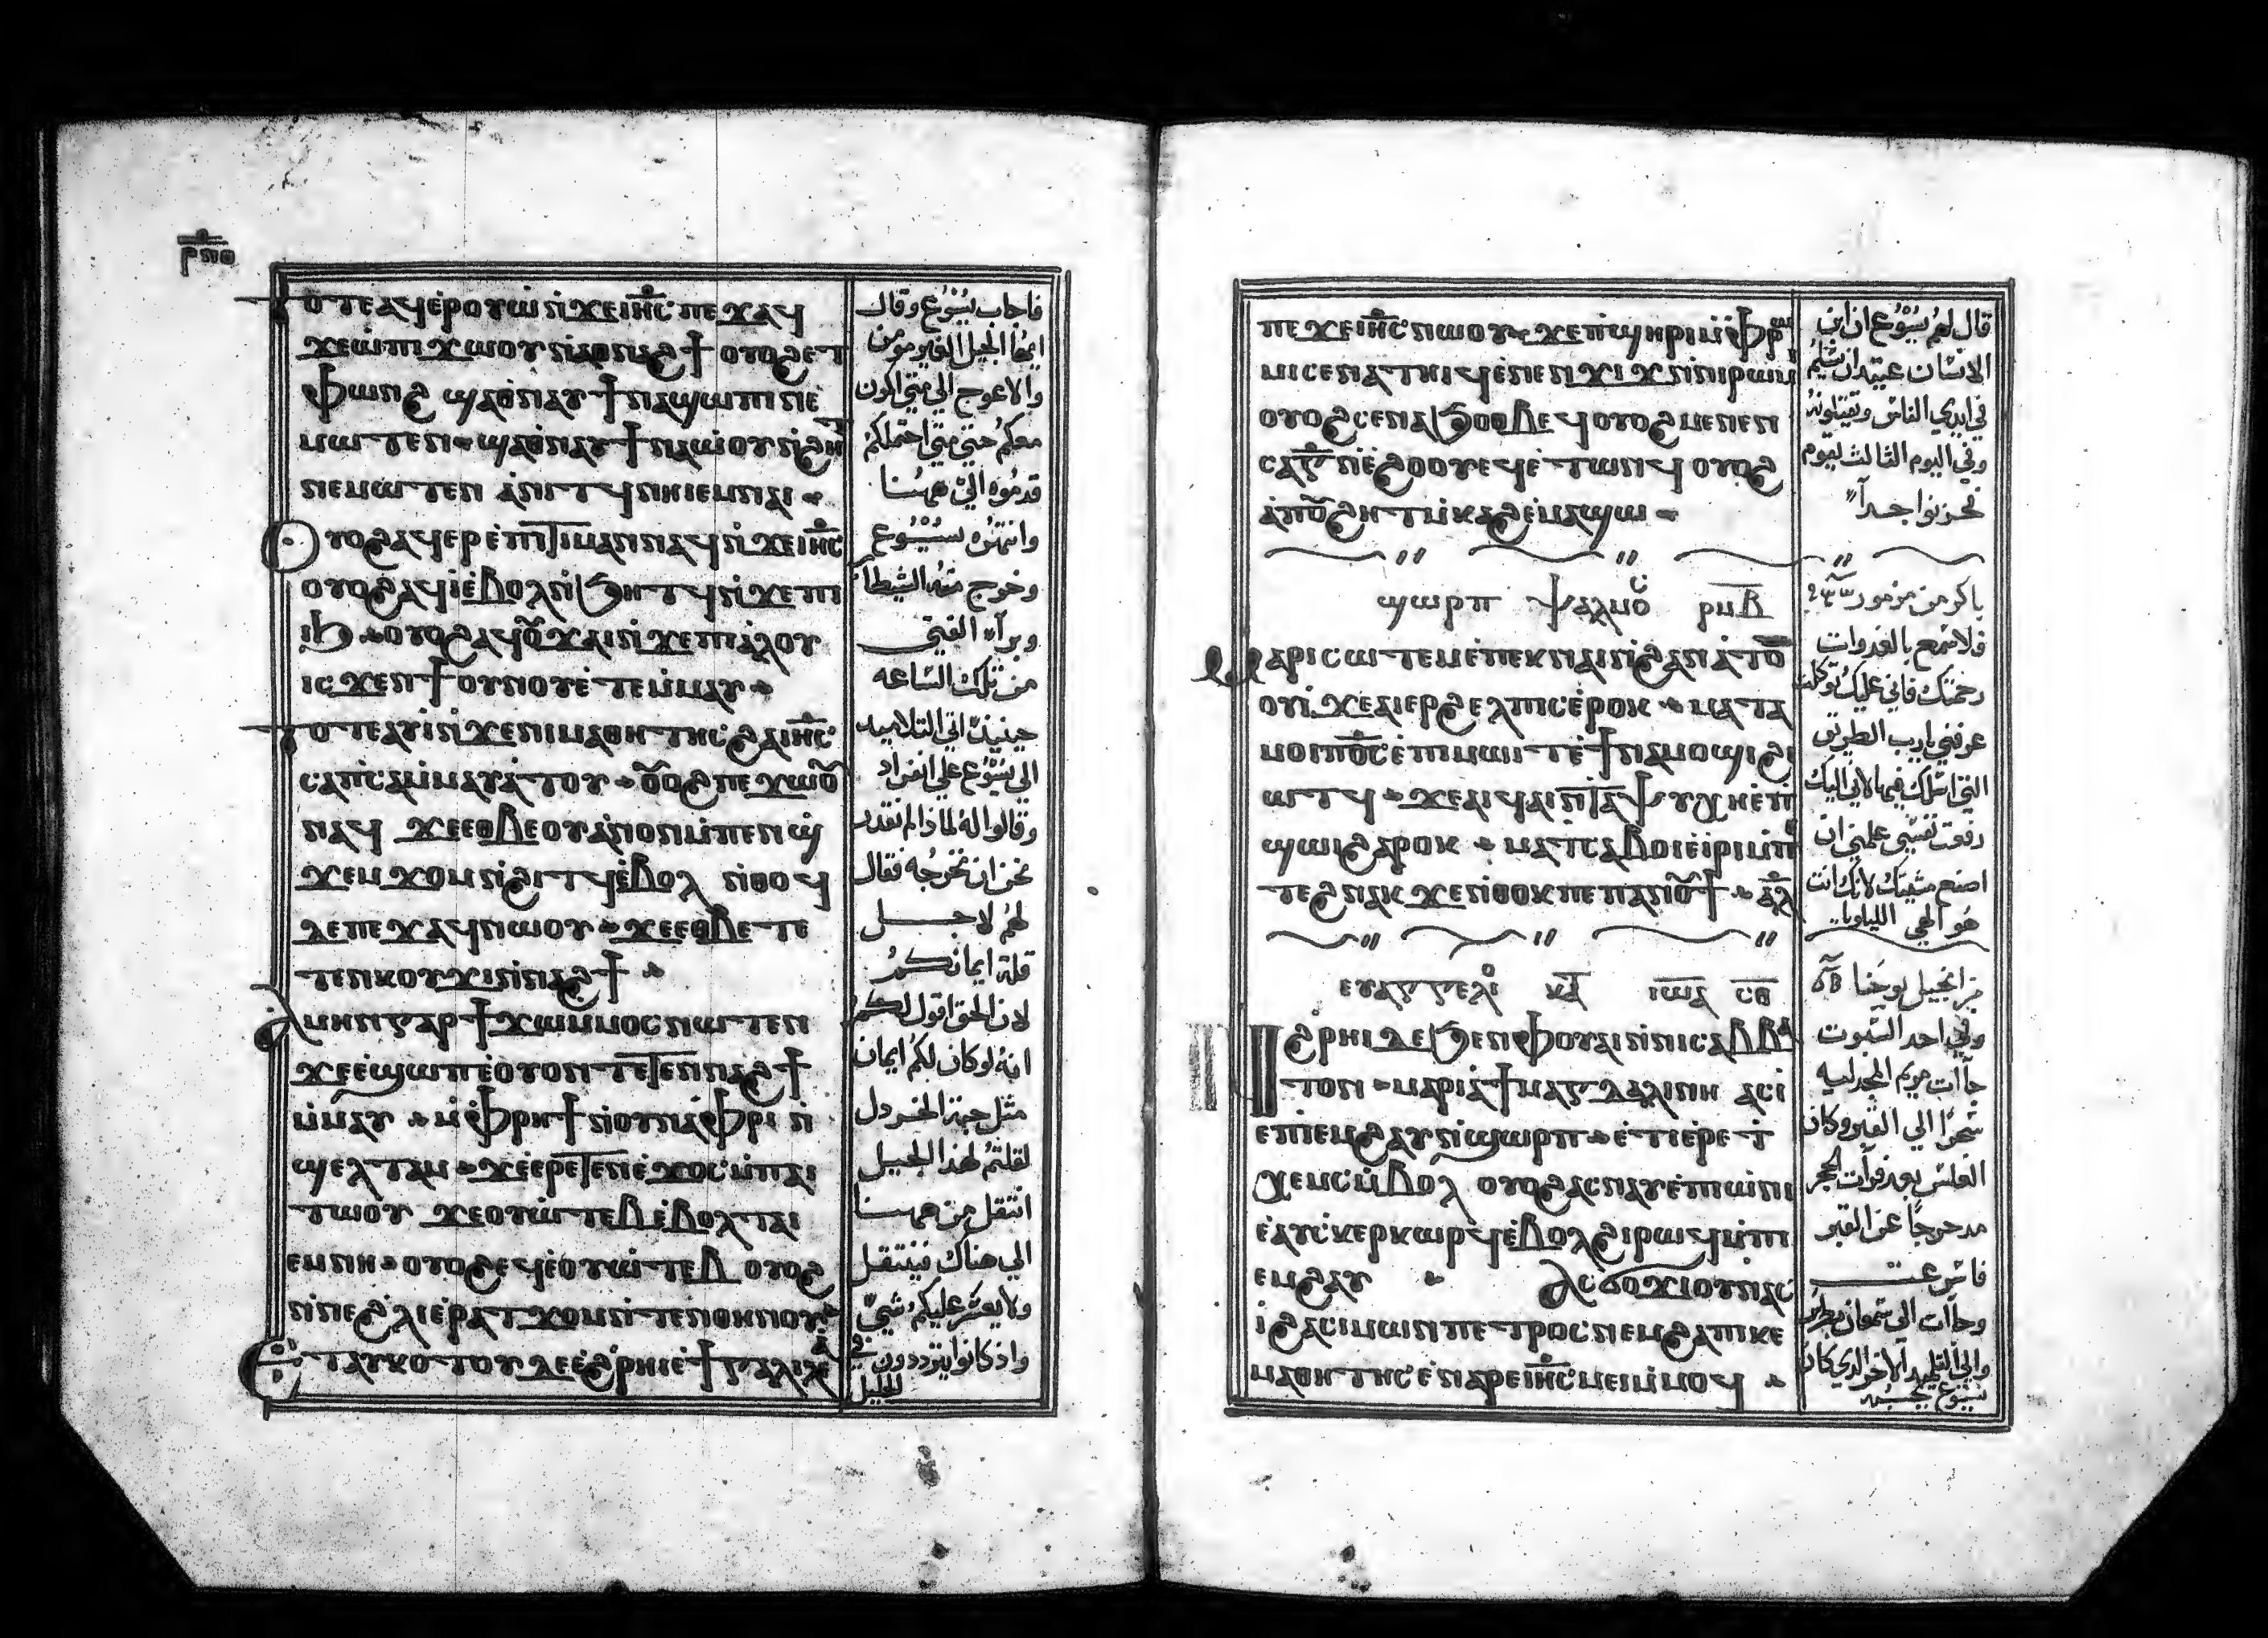 ⲣⲡⲑ
ⲧⲟⲧⲉ ⲁϥⲉⲣⲟⲩⲱ ⲛϫⲉ ⲓⲏⲥ ⲡⲉϫⲁϥ
ϫⲉ ⲱ ⲡⲓϫⲱⲟⲩ ⲛⲁⲑⲛⲁϩϯ ⲟⲩⲟϩ ⲉⲧ
ⲫⲱⲛϩ ϣⲁⲑⲛⲁⲩ ϯⲛⲁϣⲱⲡⲓ ⲛⲉ
ⲙⲱⲧⲉⲛ ϣⲁⲑⲛⲁⲩ ϯⲛⲁⲱⲟⲩ ⲛϩⲏⲧ
ⲛⲉⲙⲱⲧⲉⲛ ⲁⲛⲓⲧϥ ⲛⲏⲓ ⲉⲙⲛⲁⲓ
ⲟⲩⲟϩ ⲁϥⲉⲣⲉⲡⲓⲧⲓⲙⲁⲛ ⲛⲁϥ ⲛϫⲉ ⲓⲏⲥ
ⲟⲩⲟϩ ⲁϥⲓ ⲉⲃⲟⲗ ⲛϧⲏⲧϥ ⲛϫⲉ ⲡⲓ
ⲓϧ ⲟⲩⲟϩ ⲁϥⲟⲩϫⲁⲓ ⲛϫⲉ ⲡⲓⲁⲗⲟⲩ
ⲓⲥϫⲉⲛ ϯⲟⲩⲛⲟⲩ ⲉⲧⲉⲙⲙⲁⲩ
ⲧⲟⲧⲉ ⲁⲩⲓ ⲛϫⲉ ⲛⲓⲙⲁⲑⲏⲧⲏⲥ ϩⲁ ⲓⲏⲥ
ⲥⲁⲡⲥⲁ ⲙⲙⲁⲩⲁⲧⲟⲩ ⲟⲩⲟϩ ⲡⲉϫⲱⲟⲩ
ⲛⲁϥ ϫⲉ ⲉⲑⲃⲉⲟⲩ ⲁⲛⲟⲛ ⲙⲡⲉⲛϣ
ϫⲉⲙϫⲟⲙ ⲛϩⲓⲧϥ ⲉⲃⲟⲗ ⲛⲑⲟϥ
ⲇⲉ ⲡⲉϫⲁϥ ⲛⲱⲟⲩ ϫⲉ ⲉⲑⲃⲉ ⲧⲉ
ⲧⲉⲛⲕⲟⲩϫⲓ ⲛⲛⲁϩϯ
ⲁⲙⲏⲛ ⲅⲁⲣ ϯϫⲱ ⲙⲙⲟⲥ ⲛⲱⲧⲉⲛ
ϫⲉ ⲉϣⲱⲡ ⲉⲟⲩⲟⲛⲧⲉⲧⲉⲛ ⲛⲁϩϯ
ⲙⲙⲁⲩ ⲙⲫⲣⲏϯ ⲛⲟⲩⲛⲁⲫⲣⲓ ⲛ
ϣⲉⲗⲧⲁⲙ ϫⲉ ⲉⲣⲉⲧⲉⲛⲉϫⲟⲥ ⲙⲡⲁⲓ
ⲧⲱⲟⲩ ϫⲉ ⲟⲩⲱⲧⲉⲃ ⲉⲃⲟⲗ ⲧⲁⲓ
ⲉⲙⲛⲏ ⲟⲩⲟϩ ⲉϥⲉⲟⲩⲱⲧⲉⲃ ⲟⲩⲟϩ
ⲛⲛⲉϩⲗⲓ ⲉⲣⲁⲧϫⲟⲙ ⲛⲧⲉⲛⲑⲏⲛⲟⲩ
ⲉⲧⲁⲩⲕⲟⲧⲟⲩ ⲇⲉ ⲉϩⲣⲏⲓ ⲉϯⲅⲁⲗⲓⲗⲉⲁ
فاجاب يسوع وقال
ايها الجيل الغير مومن
والاعوج الي متي اكون
معكم حتي متي احتملكم
قدموه الي ههنا
وانتهره يسوع
وخرج منه الشيطان
وبرآ الفتي
من تلك الساعه
حينيذ اتي التلاميد
الي يسوع علي انفراد
وقالوا له لماذا لم نقدر
نحن ان نخرجه فقال
لهم لاجل
قلة ايمانكم
لان الحق اقول لكم
انه لو كان لكم ايمان
مثل حبة الخردل
لقلتم لهذا الجبيل
انتقل من ههنا
الي هناك فينتقل
ولا يعسر عليكم شي
واذ كانوا يترددون في
الجليل
ⲡⲉϫⲉ ⲓⲏⲥ ⲛⲱⲟⲩ ϫⲉ ⲡϣⲏⲣⲓ ⲙⲫⲣⲱ
ⲙⲓ ⲥⲉⲛⲁⲧⲏⲓϥ ⲉⲛⲉⲛϫⲓϫ ⲛⲛⲓⲣⲱⲙⲓ
ⲟⲩⲟϩ ⲥⲉⲛⲁϧⲟⲑⲃⲉϥ ⲟⲩⲟϩ ⲙⲉⲛⲉⲛ
ⲥⲁ ⲅ ⲛⲉϩⲟⲟⲩ ⲉϥⲉⲧⲱⲛϥ ⲟⲩⲟϩ
ⲁⲡⲟⲩϩⲏⲧ ⲙⲕⲁϩ ⲉⲙⲁϣⲱ
ϣⲱⲣⲡ ⲯⲁⲗⲙⲟⲥ ⲣⲙⲃ
ⲙⲁⲣⲓⲥⲱⲧⲉⲙ ⲉⲡⲉⲕⲛⲁⲓ ⲛϩⲁⲛⲁⲧⲟ
ⲟⲩⲓ ϫⲉ ⲁⲓⲉⲣϩⲉⲗⲡⲓⲥ ⲉⲣⲟⲕ ⲙⲁⲧⲁ
ⲙⲟⲓ ⲡⲟⲥ ⲉⲡⲓⲙⲱⲓⲧ ⲉϯⲛⲁⲙⲟϣⲓ ϩⲓ
ⲱⲧϥ ϫⲉ ⲁⲓϥⲁⲓ ⲛⲧⲁⲯⲩⲭⲏ ⲉⲡ
ϣⲱⲓ ϩⲁⲣⲟⲕ ⲙⲁⲧⲥⲁⲃⲟⲓ ⲉⲓⲣⲓ ⲙⲡⲉ
ⲧⲉϩⲛⲁⲕ ϫⲉ ⲛⲑⲟⲕ ⲡⲉ ⲡⲁⲛⲟⲩϯ ⲁⲗ
ⲉⲩⲁⲅⲅⲉⲗⲓⲟ ⲕⲁ ⲓⲱⲁ ⲥⲑ
ⲛϩⲣⲏⲓ ⲇⲉ ϧⲉⲛ ⲫⲟⲩⲁⲓ ⲛⲛⲓⲥⲁⲃⲃⲁ
ⲧⲟⲛ ⲙⲁⲣⲓⲁ ϯⲙⲁⲅⲇⲁⲗⲓⲛⲏ ⲁⲥⲓ
ⲉⲡⲓⲙϩⲁⲩ ⲛϣⲱⲣⲡ ⲉⲧⲓ ⲉⲣⲉ ⲧ
ⲭⲉⲙⲥ ⲙⲃⲟⲗ ⲟⲩⲟϩ ⲁⲥⲛⲁⲩ ⲉⲡⲓⲱⲛⲓ
ⲉⲁⲩⲥⲕⲉⲣⲕⲱⲣϥ ⲉⲃⲟⲗ ϩⲓⲣⲱϥ ⲙⲡⲓ
ⲉⲙϩⲁⲩ ⲁⲥϭⲟϫⲓ ⲟⲩⲛ ⲁⲥ
ⲓ ϩⲁ ⲥⲓⲙⲱⲛ ⲡⲉⲧⲣⲟⲥ ⲛⲉⲙ ϩⲁ ⲡⲓⲕⲉ
ⲙⲁⲑⲏⲧⲏⲥ ⲉⲛⲁⲣⲉ ⲓⲏⲥ ⲙⲉⲓ ⲙⲙⲟϥ
قال لهم يسوع ان ابن
الانسان عتيد ان يسلم
في ايدي الناس وتقتلونه
وفي اليوم الثالث يقوم
فحزنوا جداً
باكر من مزمور
فلاسمع بالغدوات
رحمتك فاني عليك توكلت
عرفني يارب الطريق
التي اسلك فيها لاني اليك
رفعت نفسي علمني ان
اصنع مشيتك لانك انت
هو الهي الليلويا
من انجيل يوحنا
وفي احد السبوت
جاات مريم المجدليه
سحرًا الي القبر وكان
الغلس بعد فرات الحجر
مدحرجًا عن القبر
فاسرعت
وجاات الي سمعان بطرس
والي التلميد الاخر الدي كان
يسوع يحبه